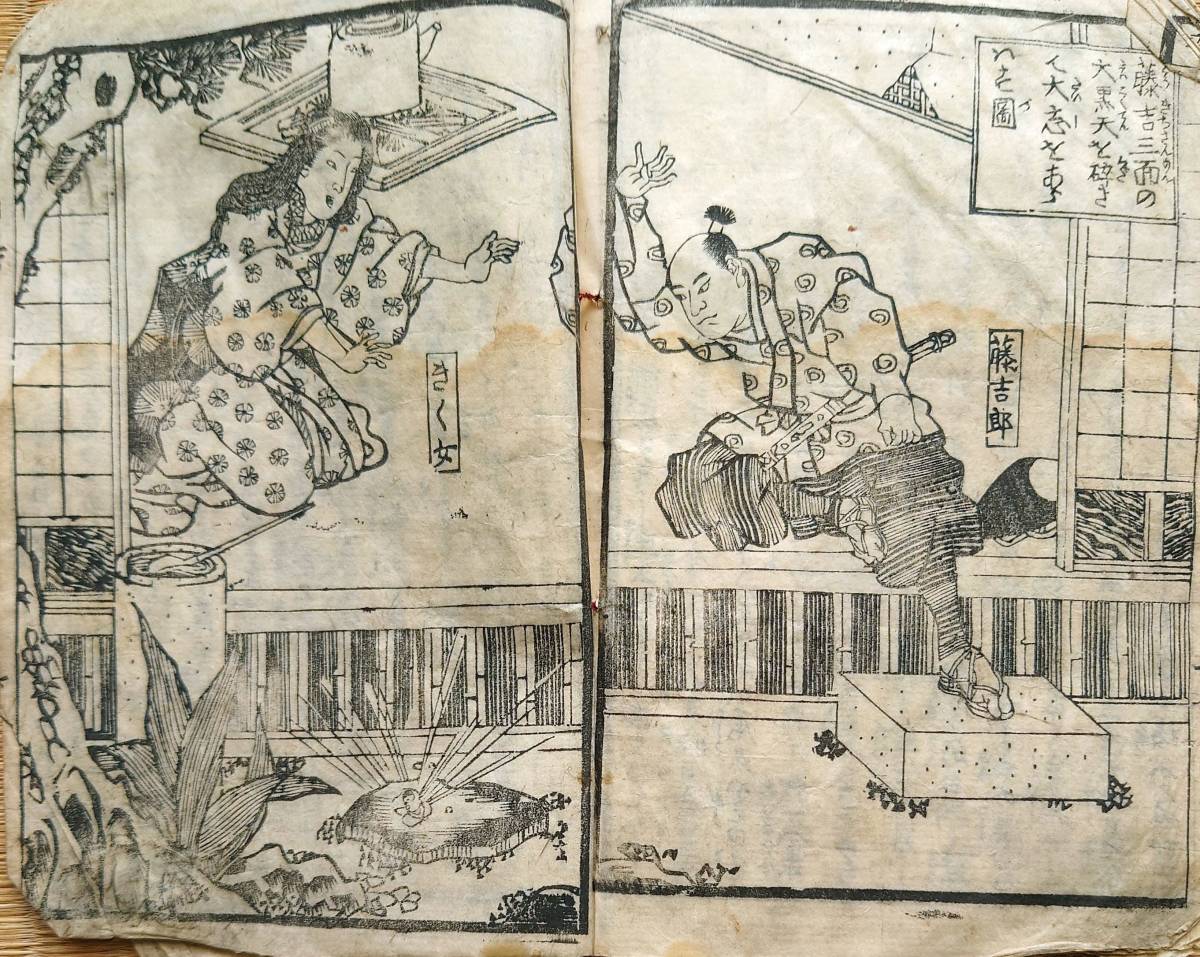 藤吉三面の
大黒天を砕き
て大志をあら
はす圖
藤吉郎
きく女